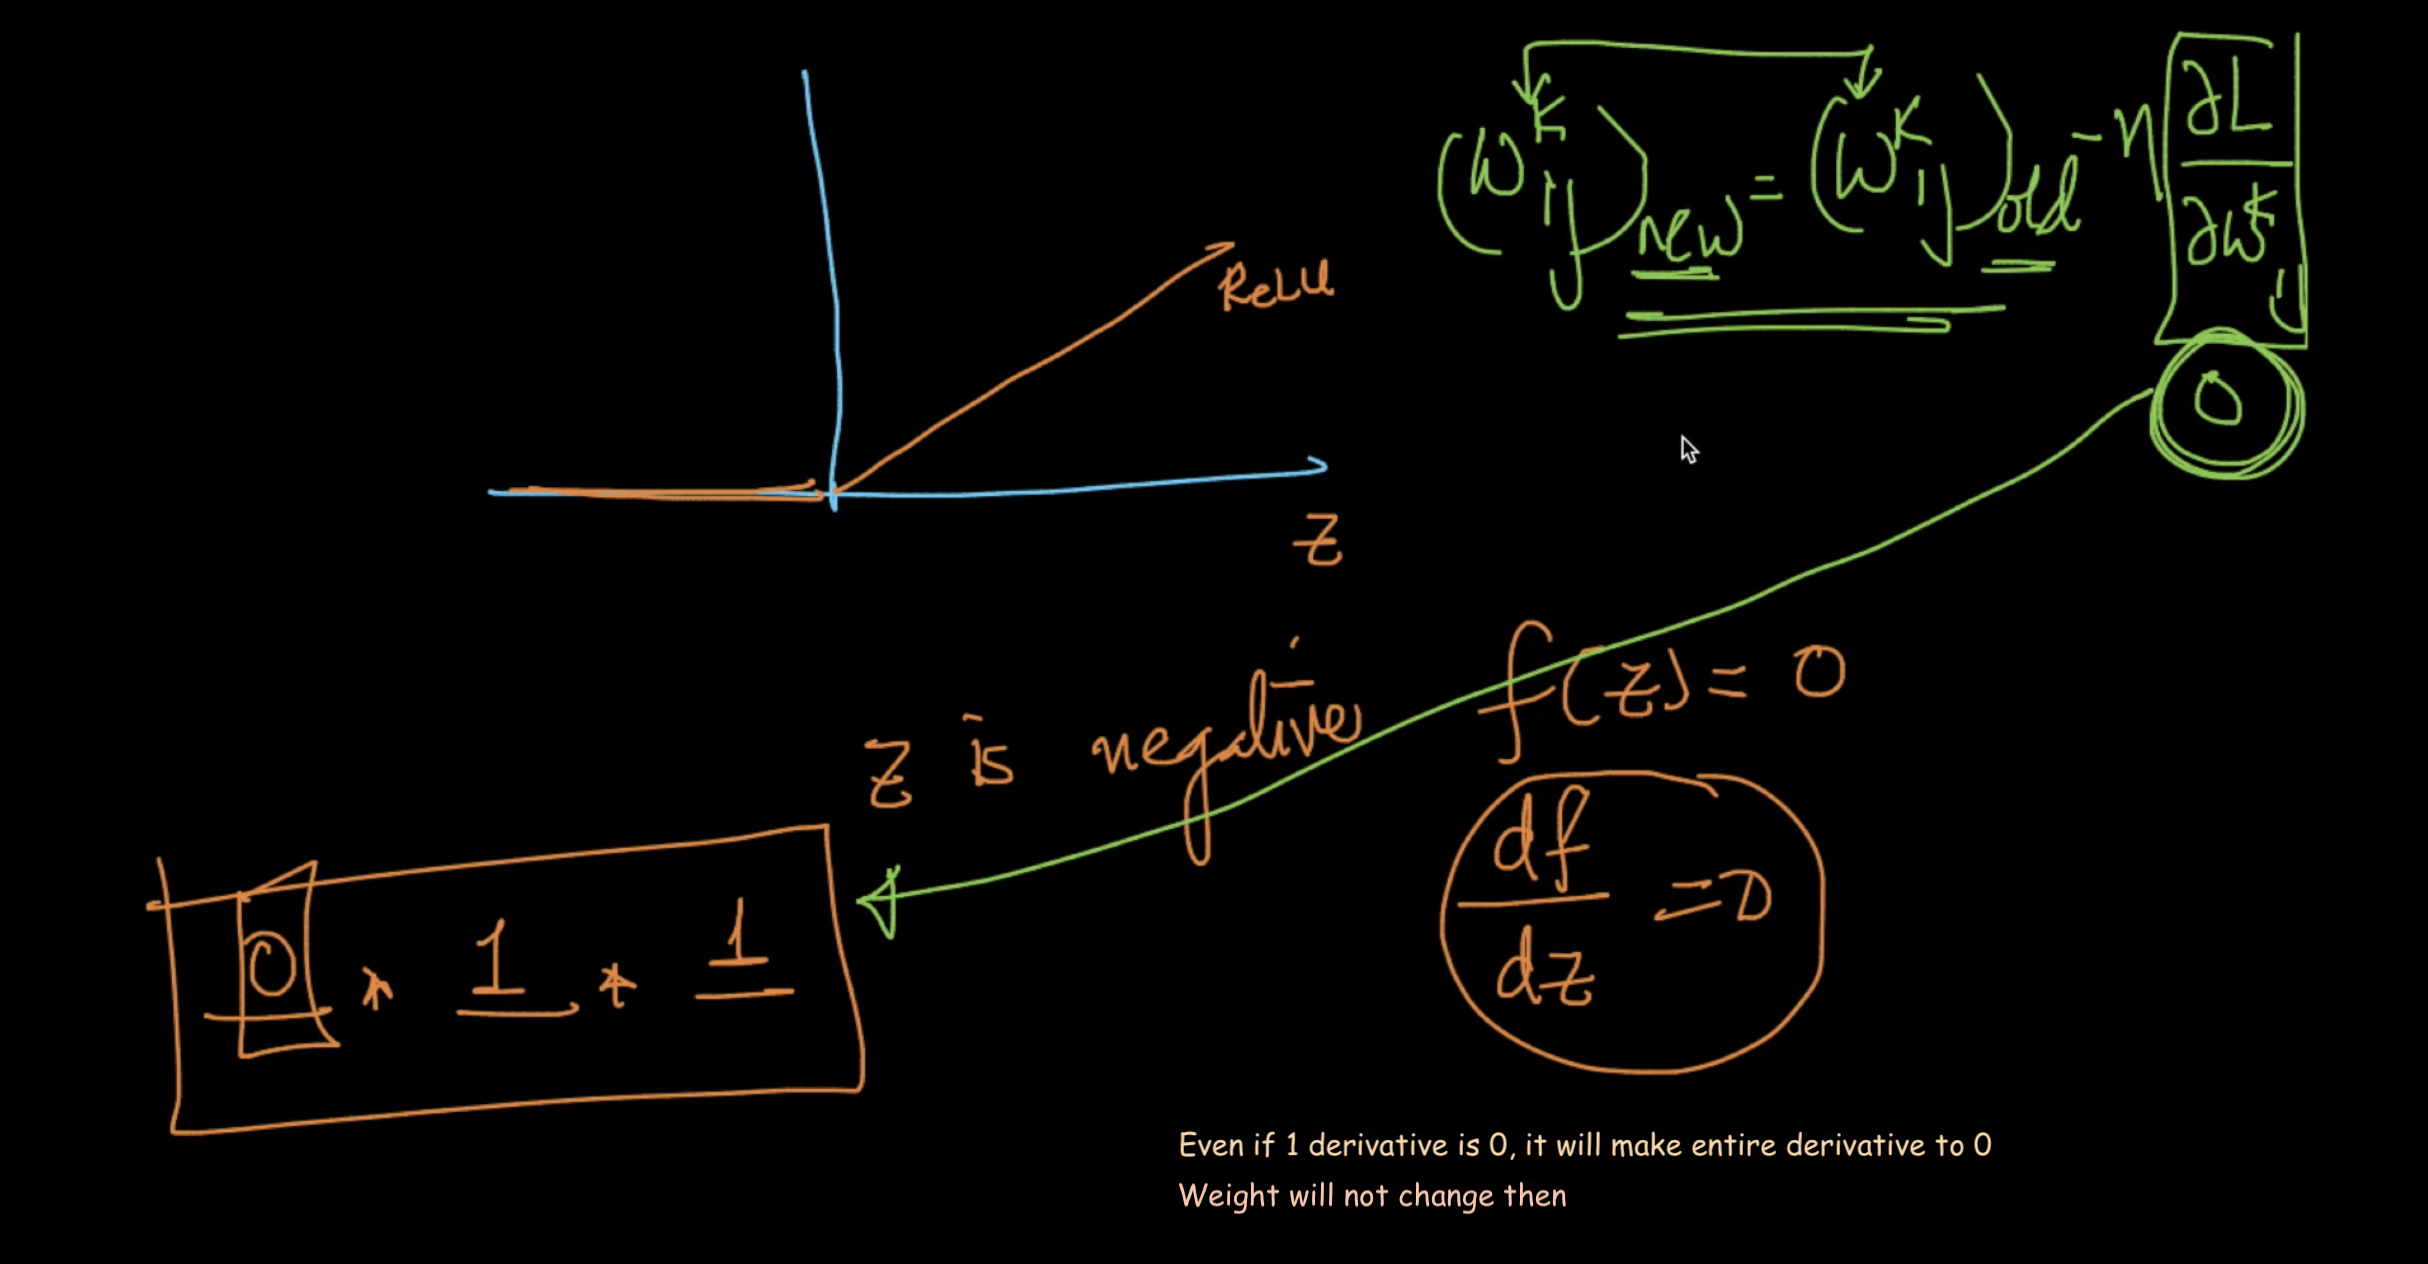 (w^k_ij)new = (w^k_ij)old - η ∂L/∂w^k_ij
0
ReLU
z
z is negative
f(z) = 0
df/dz = 0
0 * 1 * 1
Even if 1 derivative is 0, it will make entire derivative to 0
Weight will not change then